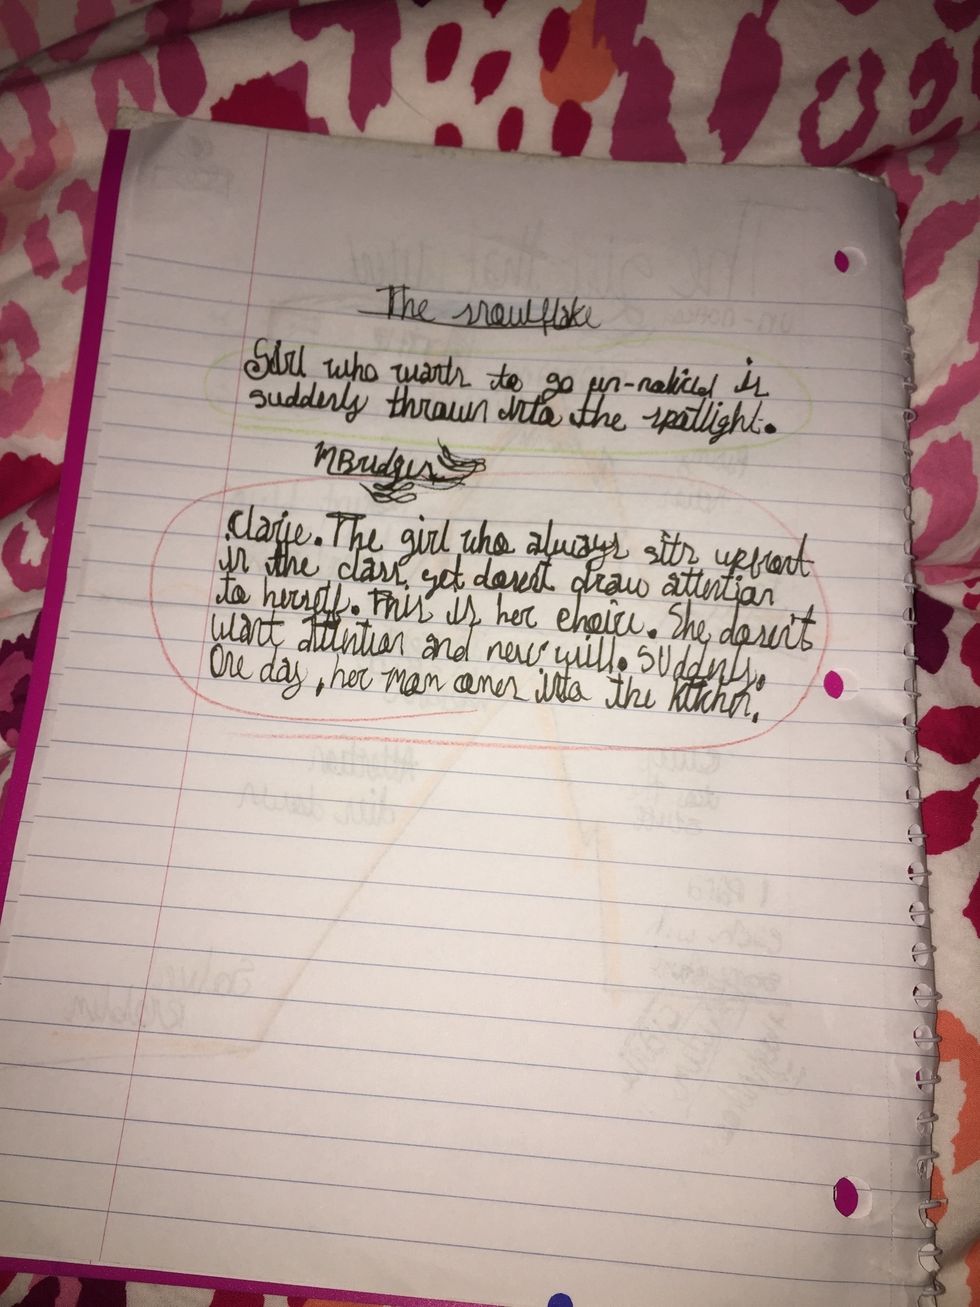 The snowflake
Girl who wants to go un-noticed is
suddenly thrown into the spotlight.
MBridges
Clarie. The girl who always sits upfront
in the class, yet dosen't draw attention
to herself. This is her choice. She dosen't
want attention and never will. Suddenly.
One day, her mom comes into the kitchen.